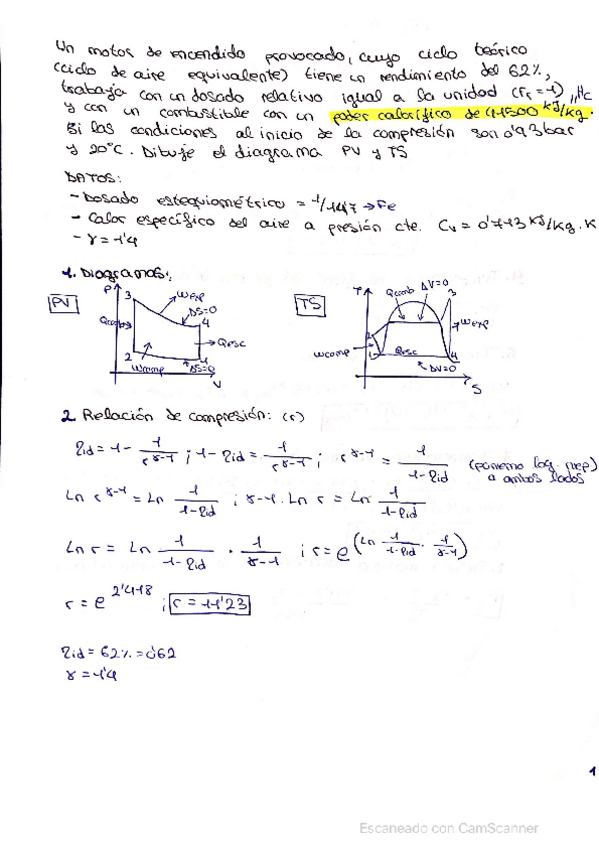 Un motor de encendido provocado, cuyo ciclo teórico
(ciclo de aire equivalente) tiene un rendimiento del 62%,
trabaja con un dosado relativo igual a la unidad (Fr = 1), Hc
y con un combustible con un poder calorífico de 44500 kJ/kg.
Si las condiciones al inicio de la compresión son 0'93 bar
y 20°C. Dibuje el diagrama PV y TS
DATOS:
- Dosado estequiométrico = 1/14'7 → Fe
- Calor específico del aire a presión cte. Cv = 0'713 kJ/kg.K
- γ = 1'4
1. Diagramas:
PV P 3 Wexp ΔS=0 4 Qcomb Qesc 2 Wcomp ΔS=0 1 V
TS T Qcomb ΔV=0 3 Wexp 2 Wcomp 1 Qesc 4 ΔV=0 S
2. Relación de compresión: (r)
ηid = 1 - 1/r^γ-1 ; 1 - ηid = 1/r^γ-1 ; r^γ-1 = 1/1-ηid (ponemo log. nep)
a ambos lados
Ln r^γ-1 = Ln 1/1-ηid ; γ-1 . Ln r = Ln 1/1-ηid
Ln r = Ln 1/1-ηid . 1/γ-1 ; r = e^(Ln 1/1-ηid . 1/γ-1)
r = e^2'418 ; r = 11'23
ηid = 62% = 0'62
γ = 1'4
1
Escaneado con CamScanner